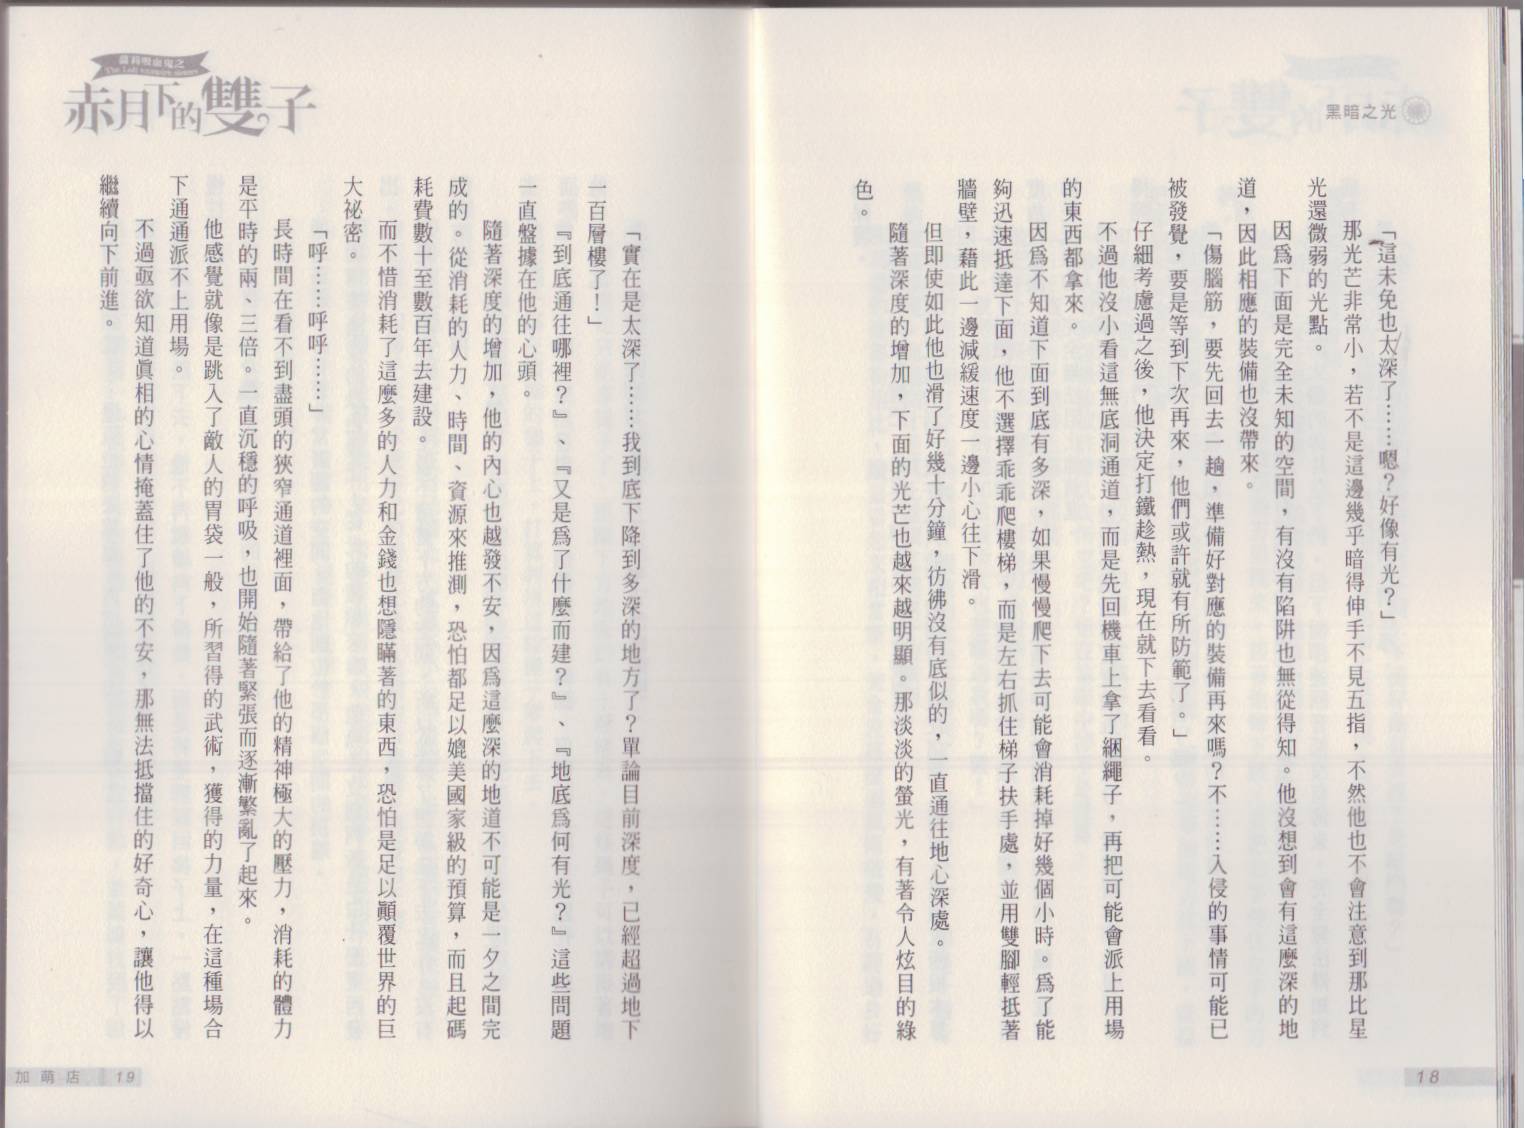 黑暗之光
「這未免也太深了……嗯？好像有光？」
那光芒非常小，若不是這邊幾乎暗得伸手不見五指，不然他也不會注意到那比星
光還微弱的光點。
因為下面是完全未知的空間，有沒有陷阱也無從得知。他沒想到會有這麼深的地
道，因此相應的裝備也沒帶來。
「傷腦筋，要先回去一趟，準備好對應的裝備再來嗎？不……入侵的事情可能已
被發覺，要是等到下次再來，他們或許就有所防範了。」
仔細考慮過之後，他決定打鐵趁熱，現在就下去看看。
不過他沒小看這無底洞通道，而是先回機車上拿了綑繩子，再把可能會派上用場
的東西都拿來。
因為不知道下面到底有多深，如果慢慢爬下去可能會消耗掉好幾個小時。為了能
夠迅速抵達下面，他不選擇乖乖爬樓梯，而是左右抓住梯子扶手處，並用雙腳輕抵著
牆壁，藉此一邊減緩速度一邊小心往下滑。
但即使如此他也滑了好幾十分鐘，彷彿沒有底似的，一直通往地心深處。
隨著深度的增加，下面的光芒也越來越明顯。那淡淡的螢光，有著令人炫目的綠
色。
18
蘿莉吸血鬼之
The Loli vampire sisters
赤月下的雙子
「實在是太深了……我到底下降到多深的地方了？單論目前深度，已經超過地下
一百層樓了！」
『到底通往哪裡？』、『又是為了什麼而建？』、『地底為何有光？』這些問題
一直盤據在他的心頭。
隨著深度的增加，他的內心也越發不安，因為這麼深的地道不可能是一夕之間完
成的。從消耗的人力、時間、資源來推測，恐怕都足以媲美國家級的預算，而且起碼
耗費數十至數百年去建設。
而不惜消耗了這麼多的人力和金錢也想隱瞞著的東西，恐怕是足以顛覆世界的巨
大祕密。
「呼……呼呼……」
長時間在看不到盡頭的狹窄通道裡面，帶給了他的精神極大的壓力，消耗的體力
是平時的兩、三倍。一直沉穩的呼吸，也開始隨著緊張而逐漸繁亂了起來。
他感覺就像是跳入了敵人的胃袋一般，所習得的武術，獲得的力量，在這種場合
下通通派不上用場。
不過亟欲知道真相的心情掩蓋住了他的不安，那無法抵擋住的好奇心，讓他得以
繼續向下前進。
加萌店 19